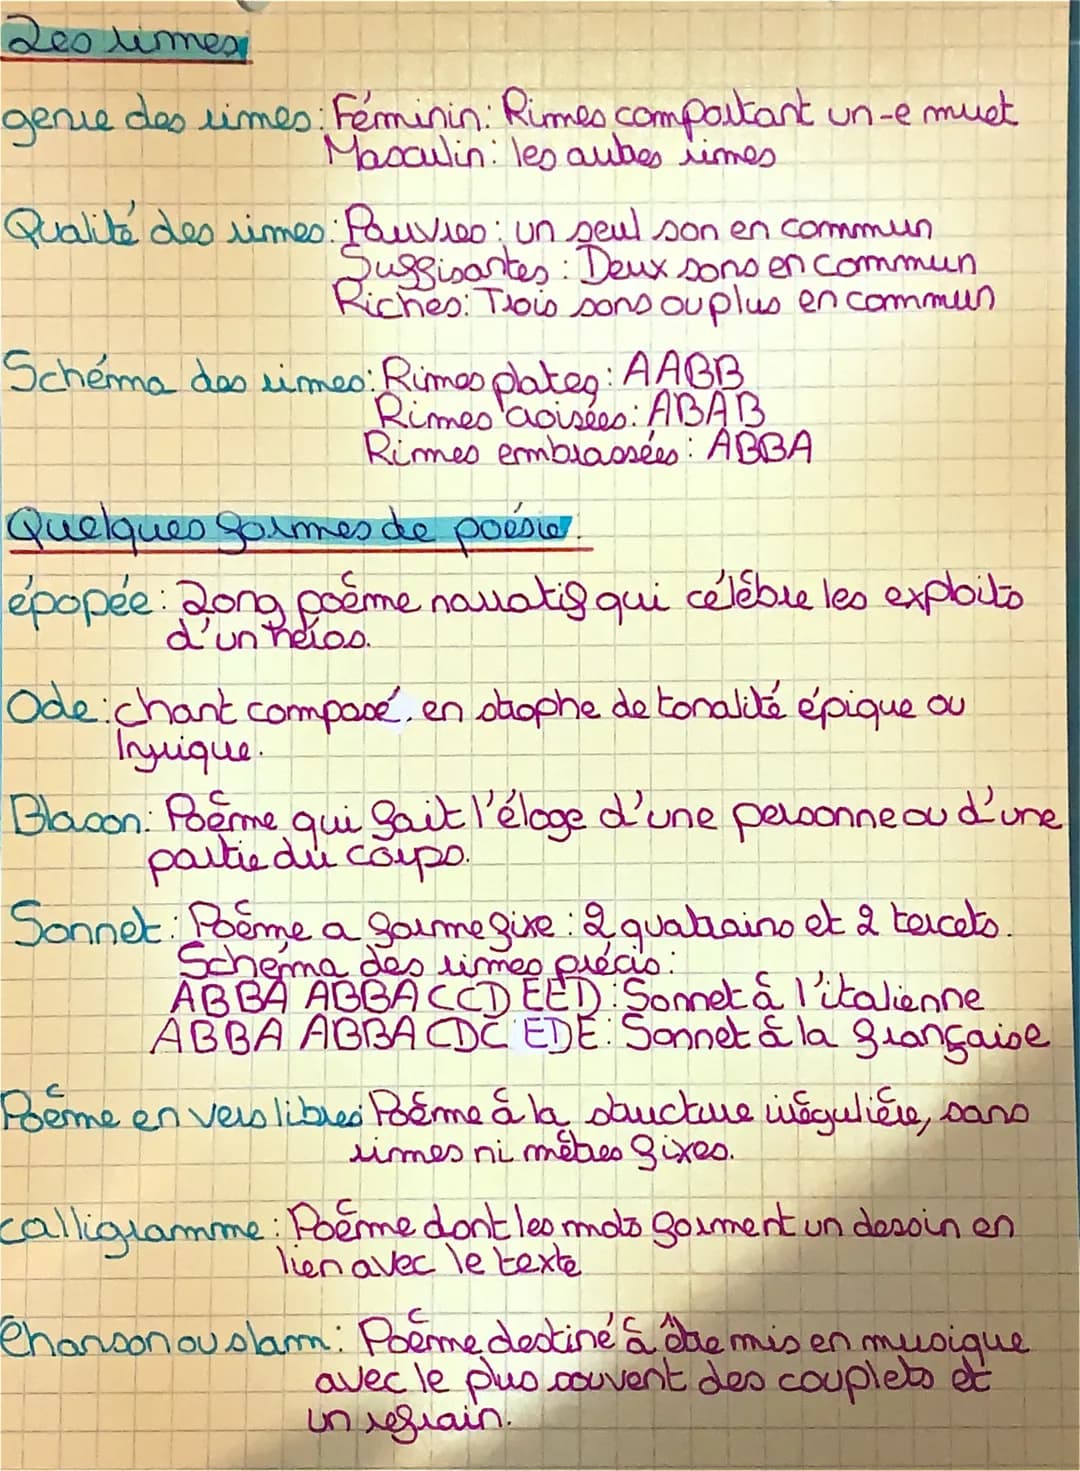 Les rimes
genre des rimes: Féminin: Rimes comportant un-e muet
Masculin: les autres rimes
Qualité des rimes: Pauvres: un seul son en commun
Suffisantes: Deux sons en commun
Riches: Trois sons ou plus en commun
Schéma des rimes: Rimes plates: AABB
Rimes croisées: ABAB
Rimes embrassées: ABBA
Quelques formes de poésie.
épopée: Long poème narratif qui célèbre les exploits
d'un héros.
Ode: chant composé, en strophe de tonalité épique ou
lyrique.
Blason: Poème qui fait l'éloge d'une personne ou d'une
partie du corps.
Sonnet: Poème a forme fixe: 2 quatrains et 2 tercets.
Schéma des rimes précis:
ABBA ABBA CCD EED: Sonnet à l'italienne
ABBA ABBA CDC EDE: Sonnet à la française
Poème en vers libres Poème à la structure irrégulière, sans
rimes ni mètres fixes.
calligramme: Poème dont les mots forment un dessin en
lien avec le texte
Chanson ou slam: Poème destiné à être mis en musique
avec le plus souvent des couplets et
un refrain.